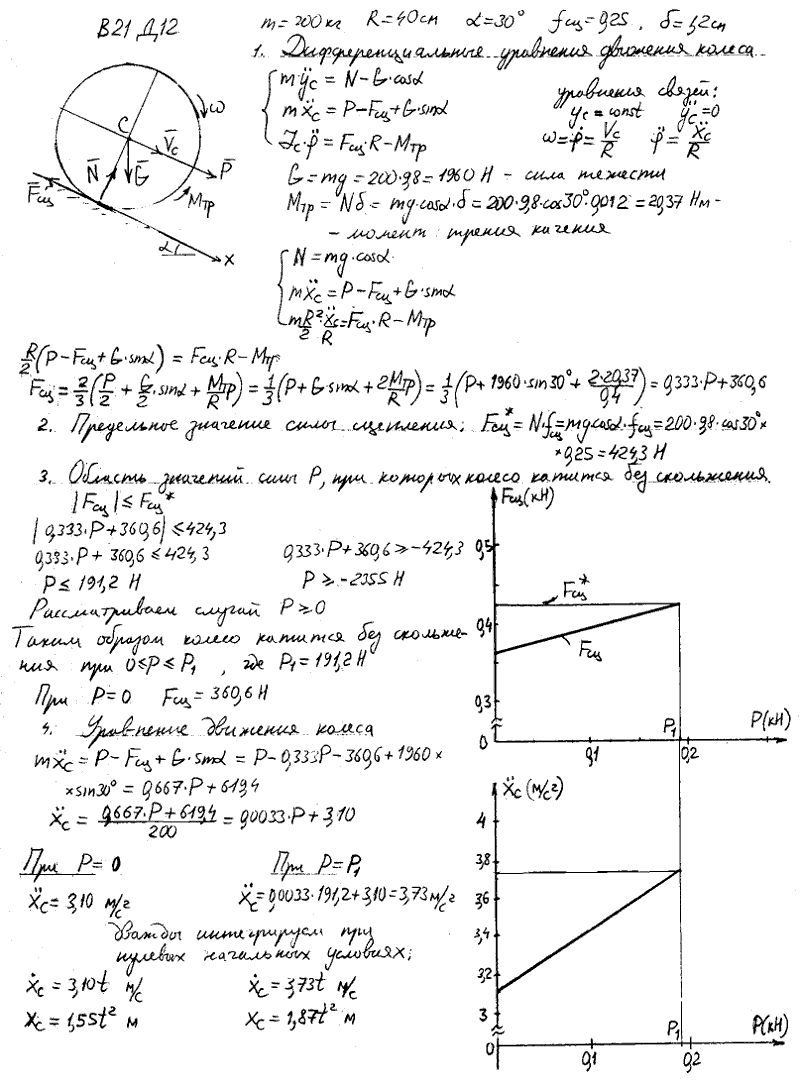 В21 Д12
m = 200 кг R = 40 cm α = 30° fсц = 0,25. δ = 1,2 cm
1. Дифференциальные уравнения движения колеса
mÿc = N − G·cosα
mẍc = P − Fсц + G·sinα
Jc·φ̈ = Fсц·R − Mтр
уравнения связей:
yc = const ÿc = 0
ω = φ̇ = Vc/R φ̈ = ẍc/R
G = mg = 200·9,8 = 1960 Н − сила тяжести
Mтр = Nδ = mg·cosα·δ = 200·9,8·cos30°·0,012 = 20,37 Нм −
− момент трения качения
N = mg·cosα
mẍc = P − Fсц + G·sinα
mR²/2·ẍc/R = Fсц·R − Mтр
ω
C
V̄c
P̄
N̄
Ḡ
F̄сц
Mтр
α
x
R/2(P − Fсц + G·sinα) = Fсц·R − Mтр
Fсц = 2/3(P/2 + G/2·sinα + Mтр/R) = 1/3(P + G·sinα + 2Mтр/R) = 1/3(P + 1960·sin30° + 2·20,37/0,4) = 0,333·P + 360,6
2. Предельное значение силы сцепления; Fсц* = N·fсц = mgcosα·fсц = 200·9,8·cos30°×
×0,25 = 424,3 Н
3. Область значений силы P, при которых колесо катится без скольжения.
|Fсц| ≤ Fсц*
|0,333·P + 360,6| ≤ 424,3
0,333·P + 360,6 ≤ 424,3 0,333·P + 360,6 ≥ −424,3
P ≤ 191,2 Н P ≥ −2355 Н
Рассматриваем случай P ≥ 0
Таким образом колесо катится без скольже-
ния при 0 ≤ P ≤ P1, где P1 = 191,2 Н
При P = 0 Fсц = 360,6 Н
4. Уравнение движения колеса
mẍc = P − Fсц + G·sinα = P − 0,333P − 360,6 + 1960 ×
×sin30° = 0,667·P + 619,4
ẍc = 0,667·P + 619,4/200 = 0,0033·P + 3,10
При P = 0 При P = P1
ẍc = 3,10 м/с² ẍc = 0,0033·191,2 + 3,10 = 3,73 м/с²
дважды интегрируем при
нулевых начальных условиях;
ẋc = 3,10t м/с ẋc = 3,73t м/с
xc = 1,55t² м xc = 1,87t² м
Fсц(кН)
0,5
Fсц*
0,4
Fсц
0,3
P1 P(кН)
0 0,1 0,2
ẍc (м/с²)
4
3,8
3,6
3,4
3,2
3
P1 P(кН)
0 0,1 0,2